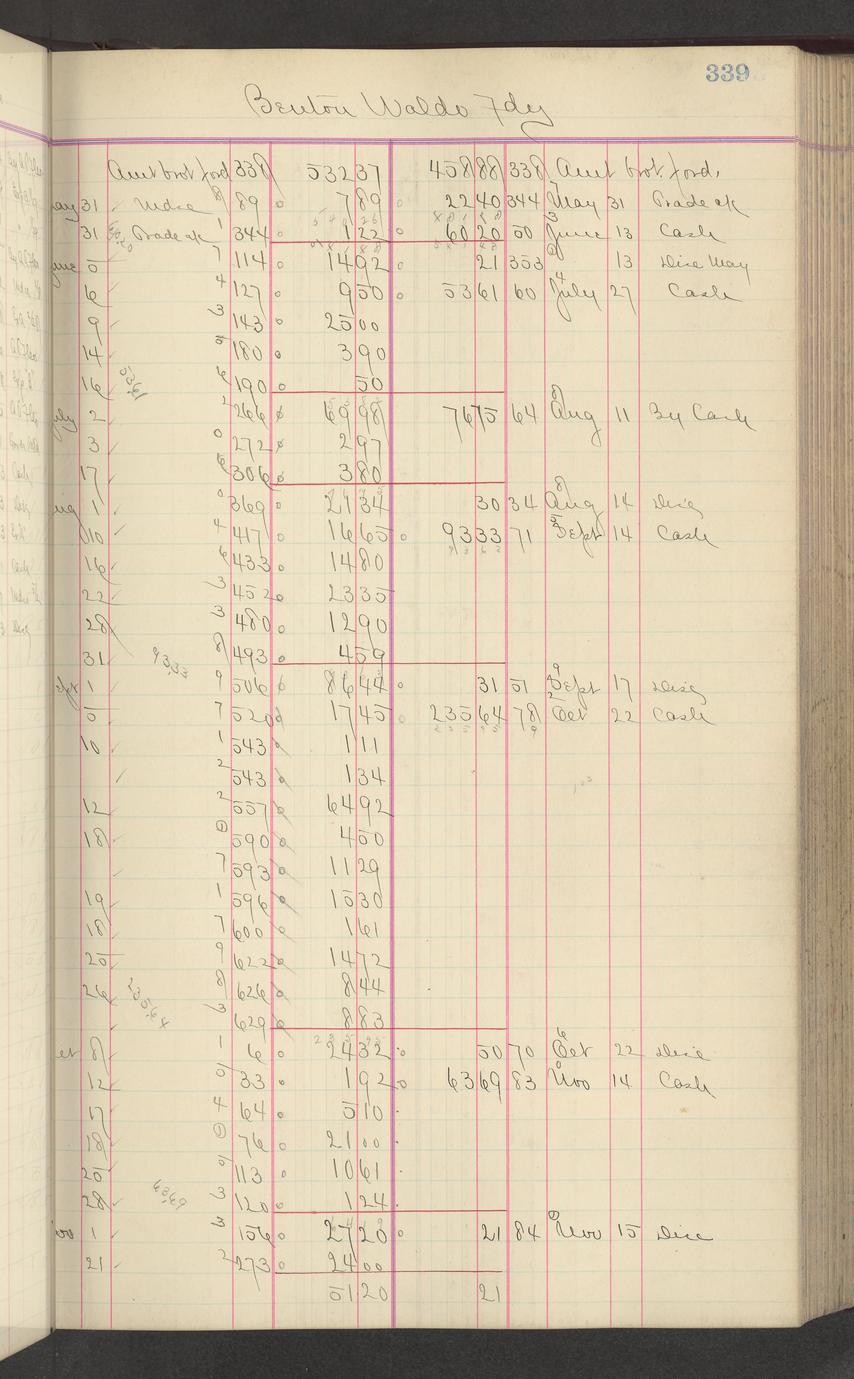 339
Benton Waldo Fdy
Amt brot ford 338 532 37 458 88 338 Amt brot. ford,
ay 31 Mdse 8 89 7 89 22 40 344 7 May 31 Trade ak
31 Trade ak 1 344 1 22 60 20 50 3 June 13 Cash
une 5 7 114 14 92 21 353 13 Disc May
6 4 127 9 50 53 61 60 4 July 27 Cash
9 3 143 25 00
14 5 180 3 90
16 53.61 6 190 50
uly 2 2 266 69 98 76 75 64 8 Aug 11 By Cash
3 0 272 2 97
17 6 306 3 80
ug 1 0 369 21 34 30 34 8 Aug 14 Disc
10 4 417 16 65 93 33 71 5 Sept 14 Cash
16 6 433 14 80
22 3 452 23 35
28 3 480 12 90
31 93.33 8 493 4 59
ept 1 9 506 86 44 31 51 9 Sept 17 Disc
5 7 520 17 45 235 64 78 2 Oct 22 Cash
10 1 543 1 11
2 543 1 34
12 2 557 64 92
18 0 590 4 50
7 593 11 29
19 1 596 15 30
18 7 600 1 61
25 9 622 14 72
26 235.64 8 626 8 44
3 629 8 83
ct 8 1 6 24 32 50 70 6 Oct 22 Disc
12 5 33 1 92 63 69 83 0 Nov 14 Cash
17 4 64 5 10
18 0 76 21 00
25 5 113 10 61
28 63.69 3 120 1 24
ov 1 3 156 27 20 21 84 0 Nov 15 Disc
21 2 273 24 00
51 20 21